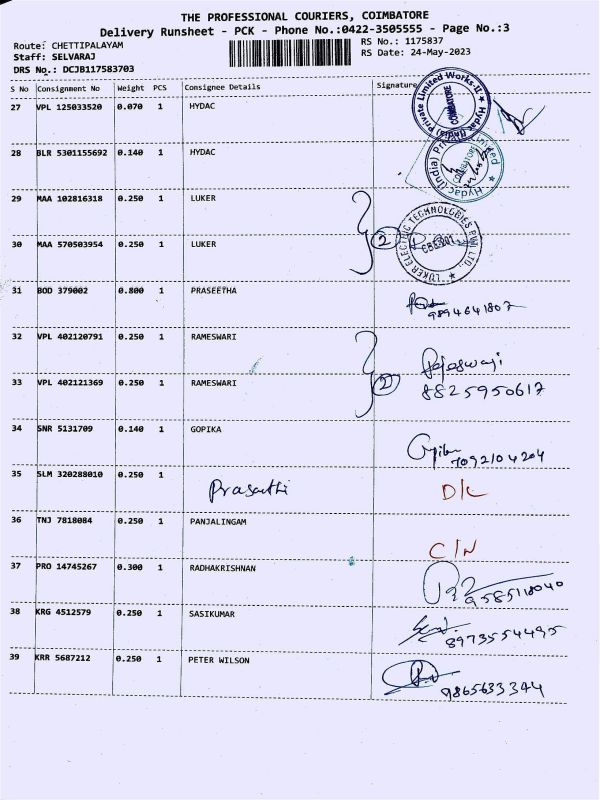 THE PROFESSIONAL COURIERS, COIMBATORE
Delivery Runsheet - PCK - Phone No.:0422-3505555 - Page No.:3
Route: CHETTIPALAYAM RS No.: 1175837
Staff: SELVARAJ RS Date: 24-May-2023
DRS No.: DCJB117583703
S No Consignment No Weight PCS Consignee Details Signature
27 VPL 125033520 0.070 1 HYDAC
Hydac (India) Private Limited Works-II
COIMBATORE
28 BLR 5301155692 0.140 1 HYDAC
Hydac (India)
COIMBATORE
29 MAA 102816318 0.250 1 LUKER
2
LUKER ELECTRIC TECHNOLOGIES PVT LTD.
30 MAA 570503954 0.250 1 LUKER
31 BOD 379002 0.800 1 PRASEETHA
9894641807
32 VPL 402120791 0.250 1 RAMESWARI
Rajeswari
2
8825950617
33 VPL 402121369 0.250 1 RAMESWARI
34 SNR 5131709 0.140 1 GOPIKA
7092104204
35 SLM 320288010 0.250 1 Prasathi D/L
36 TNJ 7818084 0.250 1 PANJALINGAM
C/N
37 PRO 14745267 0.300 1 RADHAKRISHNAN
9585118040
38 KRG 4512579 0.250 1 SASIKUMAR
8973554495
39 KRR 5687212 0.250 1 PETER WILSON
9865633344